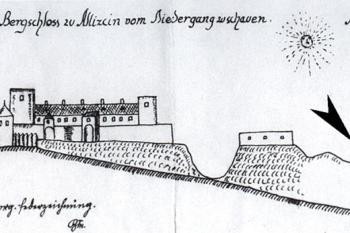 Bergschloss zu Mizcin vom Niedergang zuschauen.
erg. Federzeichnung.